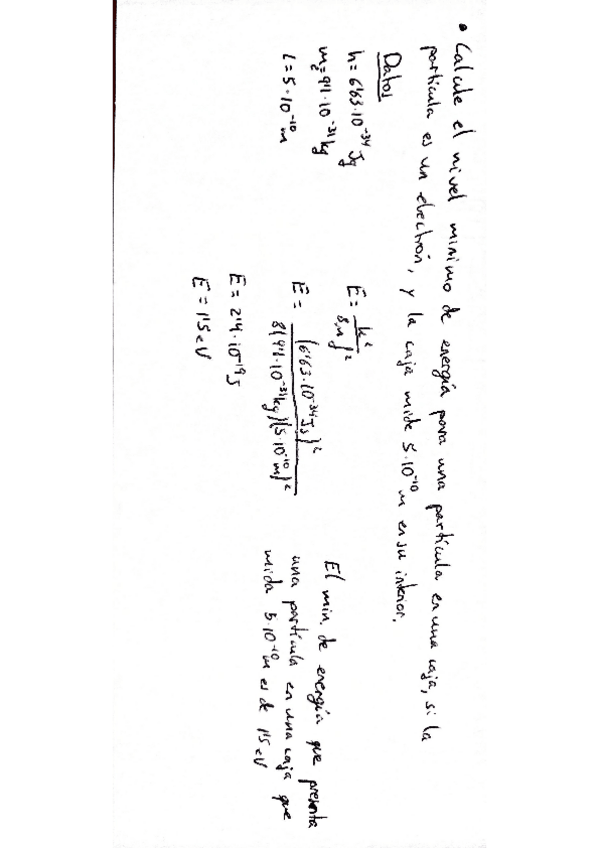 • Calcule el nivel minimo de energía para una partícula en una caja, si la
partícula es un electrón, y la caja mide 5·10⁻¹⁰ m en su interior.
Datos
h = 6'63·10⁻³⁴ Js
mₑ = 9'1·10⁻³¹ kg
l = 5·10⁻¹⁰ m
E = h² / 8ml²
E = (6'63·10⁻³⁴ Js)² / 8(9'1·10⁻³¹ kg)(5·10⁻¹⁰ m)²
E = 2'4·10⁻¹⁹ J
E = 1'5 eV
El min. de energía que presenta
una partícula en una caja que
mida 5·10⁻¹⁰ m es de 1'5 eV